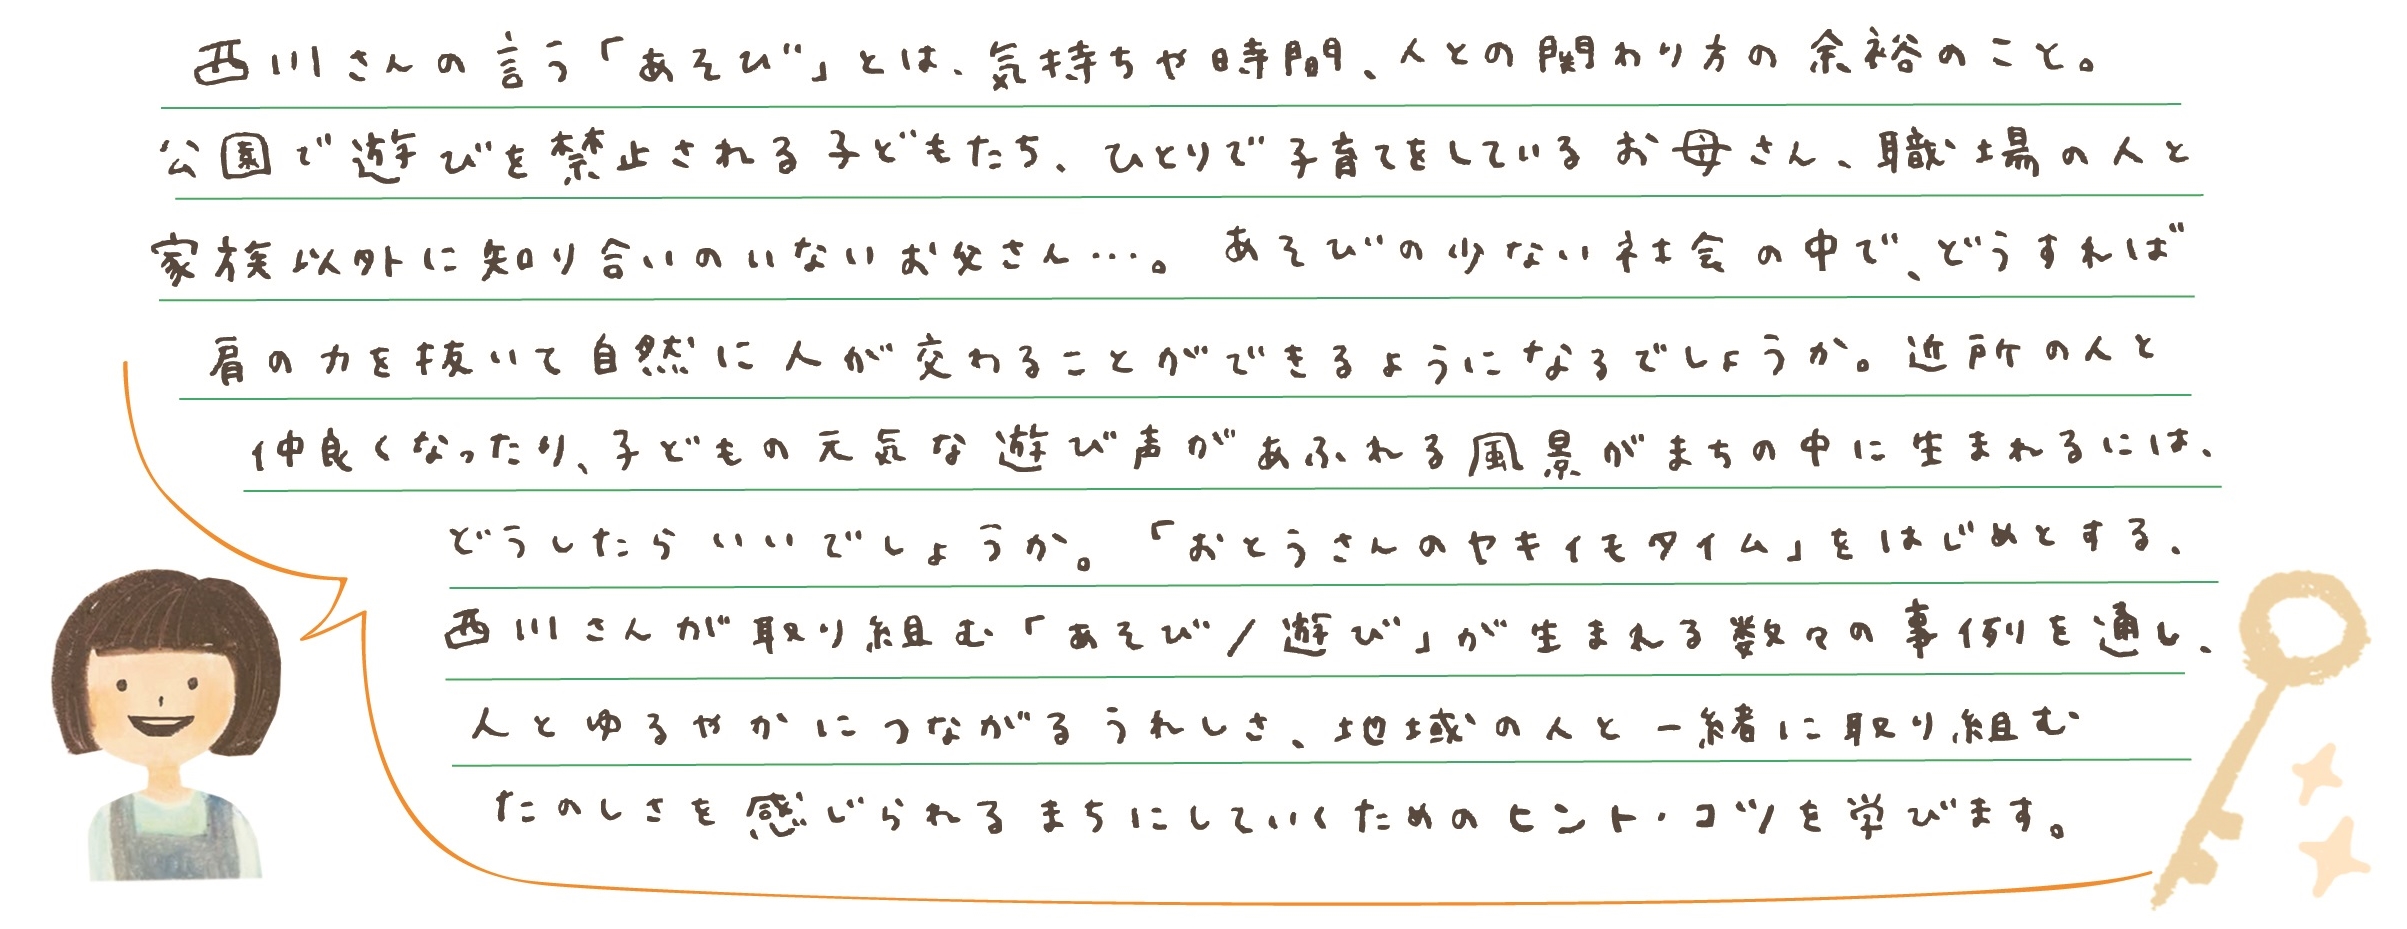 西川さんの言う「あそび」とは、気持ちや時間、人との関わり方の余裕のこと。
公園で遊びを禁止される子どもたち、ひとりで子育てをしているお母さん、職場の人と
家族以外に知り合いのいないお父さん…。あそびの少ない社会の中で、どうすれば
肩の力を抜いて自然に人が交わることができるようになるでしょうか。近所の人と
仲良くなったり、子どもの元気な遊び声があふれる風景がまちの中に生まれるには、
どうしたらいいでしょうか。「おとうさんのヤキイモタイム」をはじめとする、
西川さんが取り組む「あそび/遊び」が生まれる数々の事例を通し、
人とゆるやかにつながるうれしさ、地域の人と一緒に取り組む
たのしさを感じられるまちにしていくためのヒント・コツを学びます。